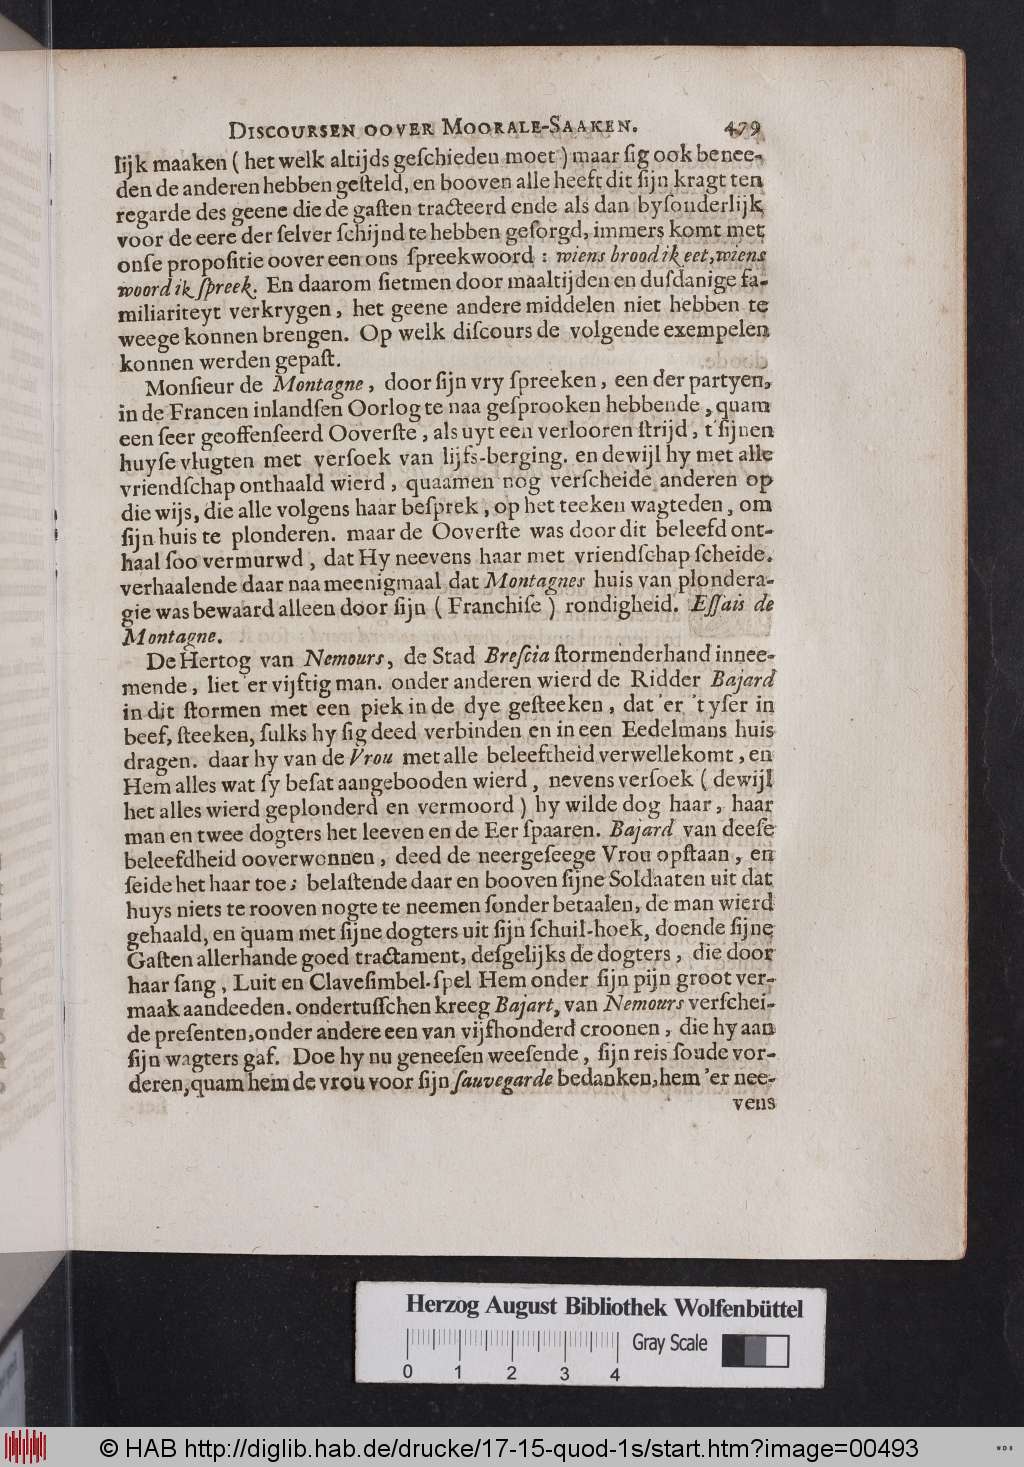 DISCOURSEN OOVER MOORALE-SAAKEN. 479
lijk maaken ( het welk altijds geſchieden moet ) maar ſig ook benee-
den de anderen hebben geſteld, en booven alle heeft dit ſijn kragt ten
regarde des geene die de gaſten tracteerd ende als dan byſonderlijk
voor de eere der ſelver ſchijnd te hebben geſorgd, immers komt met
onſe propoſitie oover een ons ſpreekwoord : wiens brood ik eet, wiens
woord ik ſpreek. En daarom ſietmen door maaltijden en duſdanige fa-
miliariteyt verkrygen, het geene andere middelen niet hebben te
weege konnen brengen. Op welk diſcours de volgende exempelen
konnen werden gepaſt.
Monſieur de Montagne, door ſijn vry ſpreeken, een der partyen,
in de Francen inlandſen Oorlog te naa geſprooken hebbende, quam
een ſeer geoffenſeerd Ooverſte, als uyt een verlooren ſtrijd, t'ſijnen
huyſe vlugten met verſoek van lijfs-berging. en dewijl hy met alle
vriendſchap onthaald wierd, quaamen nog verſcheide anderen op
die wijs, die alle volgens haar beſprek, op het teeken wagteden, om
ſijn huis te plonderen. maar de Ooverſte was door dit beleefd ont-
haal ſoo vermurwd, dat Hy neevens haar met vriendſchap ſcheide.
verhaalende daar naa meenigmaal dat Montagnes huis van plondera-
gie was bewaard alleen door ſijn ( Franchiſe ) rondigheid. Eſſais de
Montagne.
De Hertog van Nemours, de Stad Breſcia ſtormenderhand innee-
mende, liet 'er vijftig man. onder anderen wierd de Ridder Bajard
in dit ſtormen met een piek in de dye geſteeken, dat 'er 't yſer in
beef, ſteeken, ſulks hy ſig deed verbinden en in een Eedelmans huis
dragen. daar hy van de Vrou met alle beleeftheid verwellekomt, en
Hem alles wat ſy beſat aangebooden wierd, nevens verſoek ( dewijl
het alles wierd geplonderd en vermoord ) hy wilde dog haar, haar
man en twee dogters het leeven en de Eer ſpaaren. Bajard van deeſe
beleefdheid ooverwonnen, deed de neergeſeege Vrou opſtaan, en
ſeide het haar toe; belaſtende daar en booven ſijne Soldaaten uit dat
huys niets te rooven nogte te neemen ſonder betaalen, de man wierd
gehaald, en quam met ſijne dogters uit ſijn ſchuil-hoek, doende ſijne
Gaſten allerhande goed tractament, deſgelijks de dogters, die door
haar ſang, Luit en Claveſimbel-ſpel Hem onder ſijn pijn groot ver-
maak aandeeden. ondertuſſchen kreeg Bajart, van Nemours verſchei-
de preſenten, onder andere een van vijfhonderd croonen, die hy aan
ſijn wagters gaf. Doe hy nu geneeſen weeſende, ſijn reis ſoude vor-
deren, quam hem de vrou voor ſijn ſauvegarde bedanken, hem 'er nee-
vens
Herzog August Bibliothek Wolfenbüttel
Gray Scale
0 1 2 3 4
© HAB http://diglib.hab.de/drucke/17-15-quod-1s/start.htm?image=00493